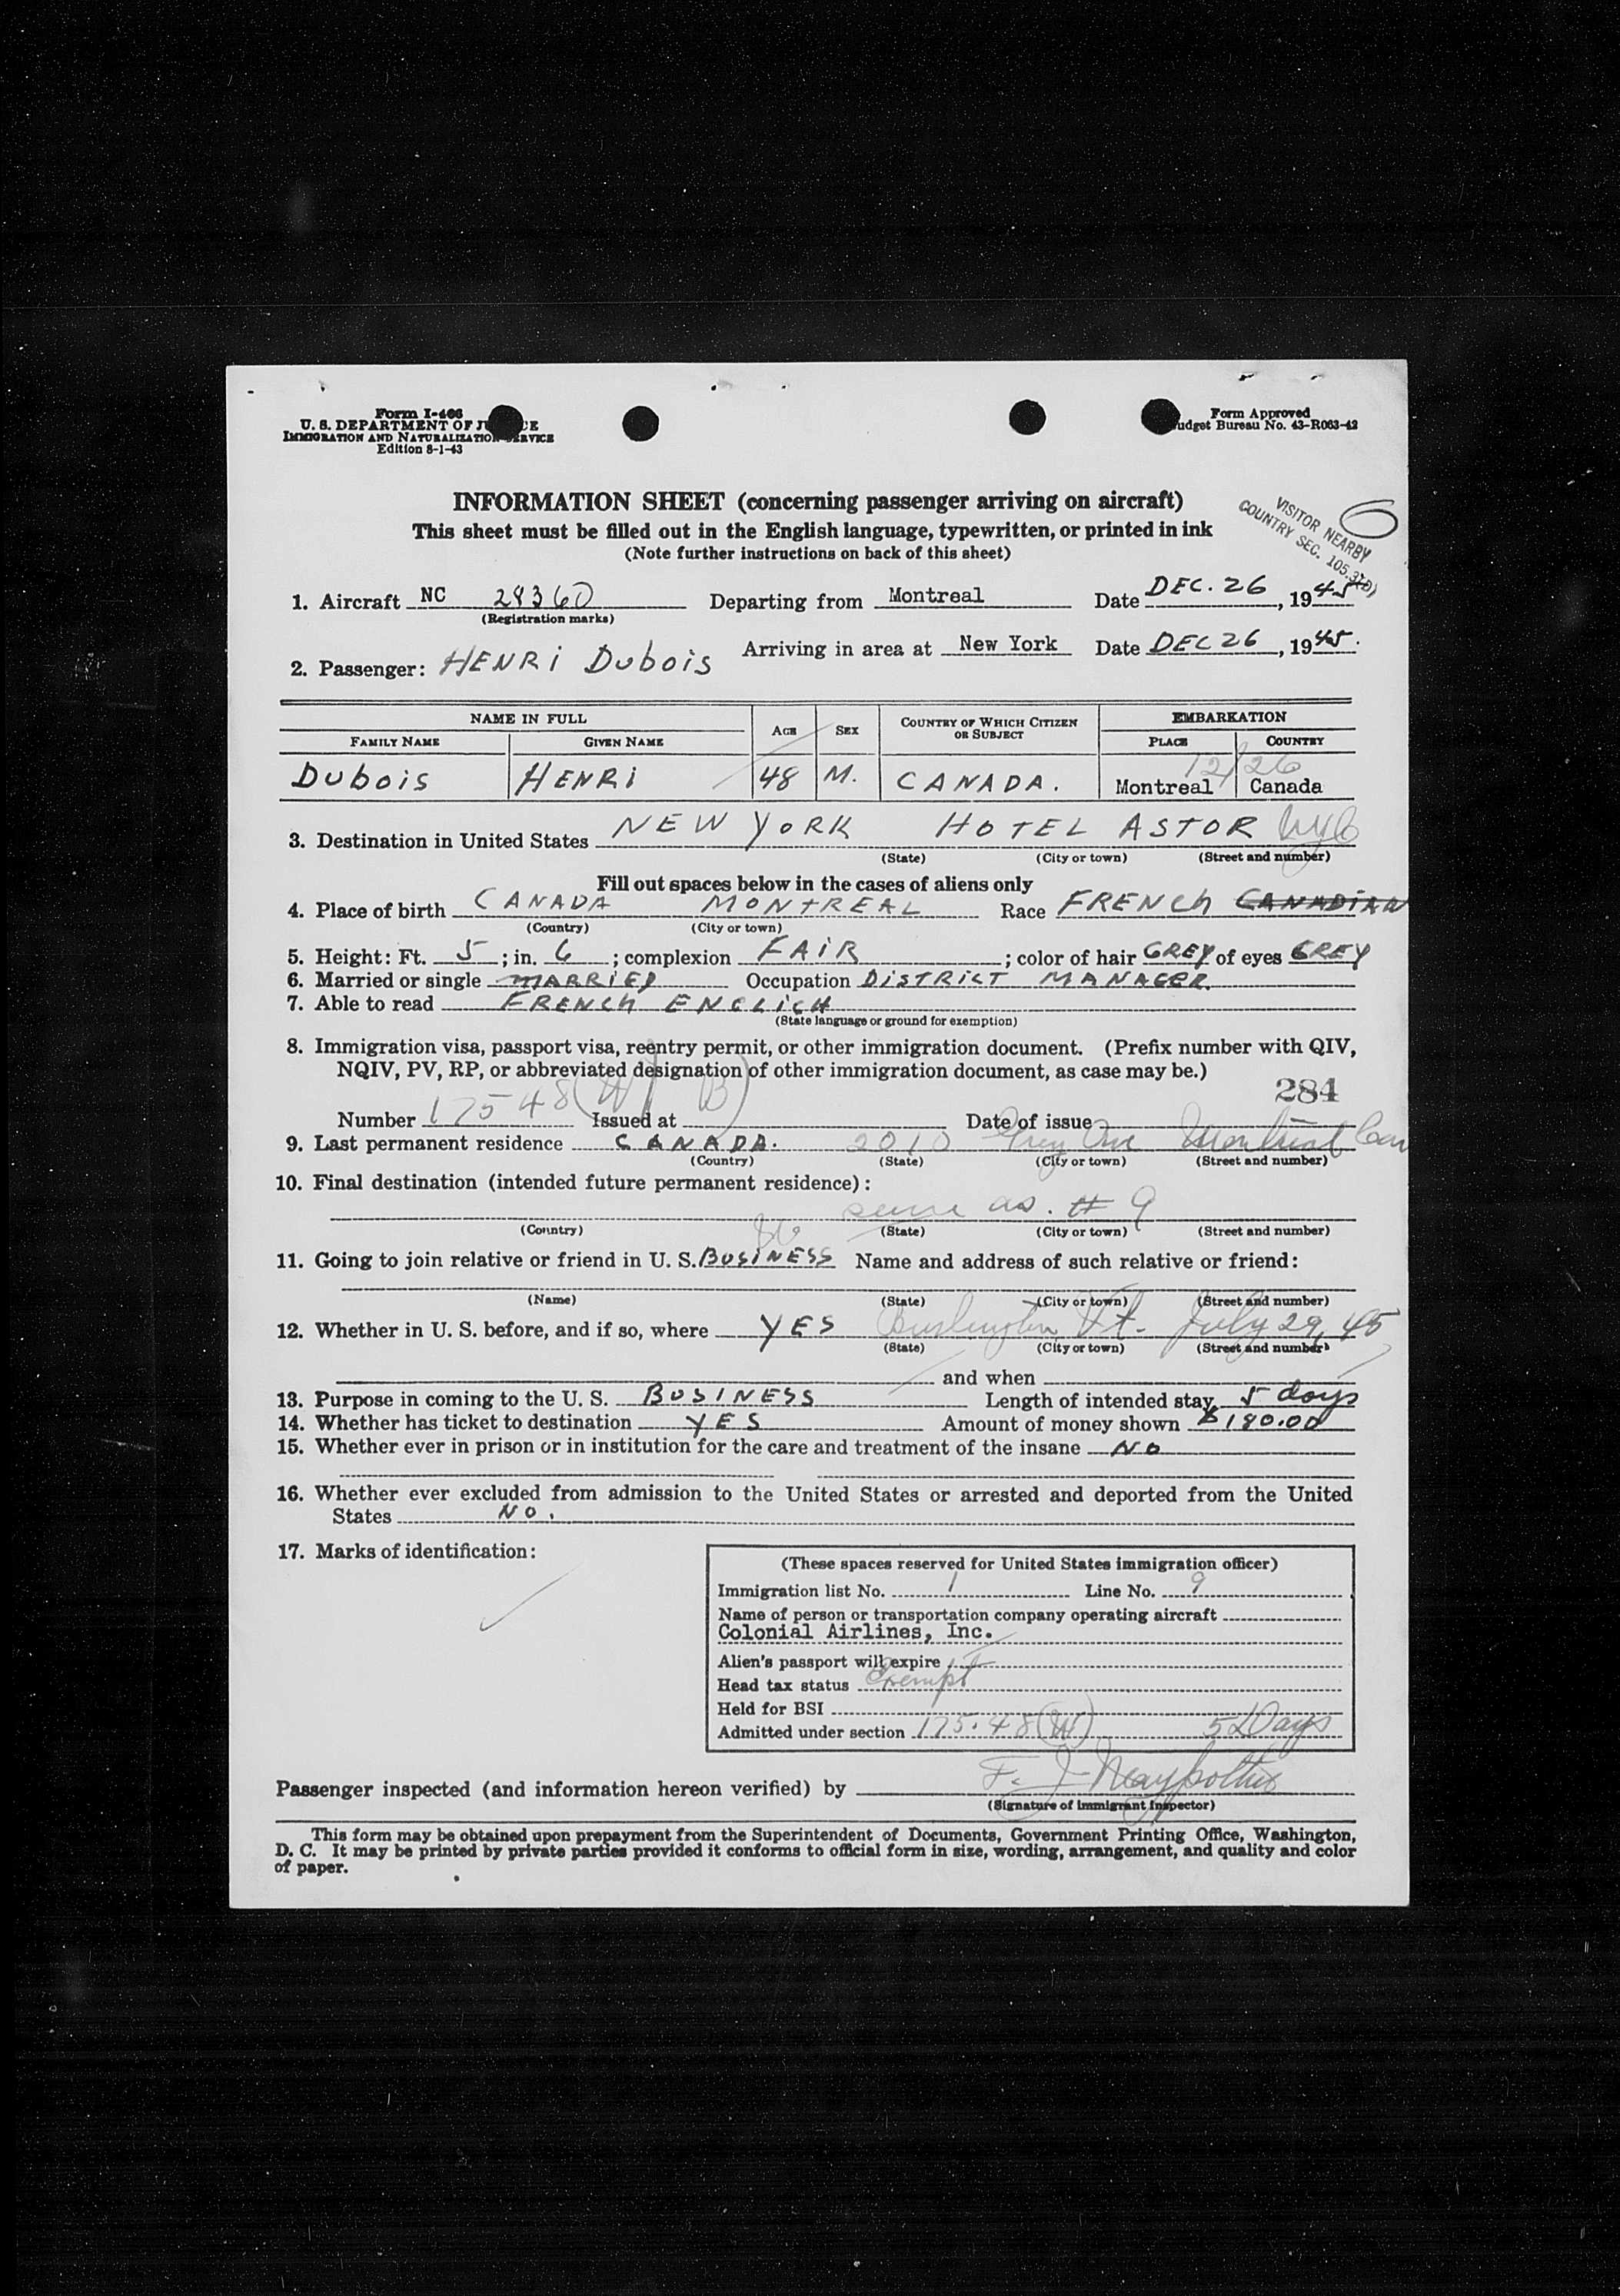 Form I-466
U. S. DEPARTMENT OF JU CE
IMMIGRATION AND NATURALIZATION SERVICE
Edition 8-1-43
Form Approved
udget Bureau No. 43-R063-42
INFORMATION SHEET (concerning passenger arriving on aircraft)
This sheet must be filled out in the English language, typewritten, or printed in ink
(Note further instructions on back of this sheet)
VISITOR NEARBY
COUNTRY SEC. 105.3(D)
1. Aircraft NC 28360 Departing from Montreal Date DEC. 26, 1945
(Registration marks)
Arriving in area at New York Date DEC 26, 1945.
2. Passenger: HENRi DuboiS
NAME IN FULL AGE SEX COUNTRY OF WHICH CITIZEN OR SUBJECT EMBARKATION
FAMILY NAME GIVEN NAME PLACE COUNTRY
12/26
DuboiS HENRi 48 M. CANADA. Montreal Canada
3. Destination in United States NEW YORK HOTEL ASTOR NYC
(State) (City or town) (Street and number)
Fill out spaces below in the cases of aliens only
4. Place of birth CANADA MONTREAL Race FRENCh CANADiAN
(Country) (City or town)
5. Height: Ft. 5; in. 6; complexion FAiR; color of hair GREY of eyes GREY
6. Married or single MARRiED Occupation DiSTRiCT MANAGER.
7. Able to read FRENCh ENGLiCH
(State language or ground for exemption)
8. Immigration visa, passport visa, reentry permit, or other immigration document. (Prefix number with QIV,
NQIV, PV, RP, or abbreviated designation of other immigration document, as case may be.)
284
Number 175 48 (W) B) Issued at Date of issue
9. Last permanent residence CANADA. 2010 Grey Ave Montreal Can
(Country) (State) (City or town) (Street and number)
10. Final destination (intended future permanent residence):
same as. # 9
(Country) (State) (City or town) (Street and number)
11. Going to join relative or friend in U. S. BUSINESS Name and address of such relative or friend:
(Name) (State) (City or town) (Street and number)
12. Whether in U. S. before, and if so, where YES Burlington Vt. July 29, 45
(State) (City or town) (Street and number)
and when
13. Purpose in coming to the U. S. BUSINESS Length of intended stay 5 days
14. Whether has ticket to destination YES Amount of money shown $180.00
15. Whether ever in prison or in institution for the care and treatment of the insane NO
16. Whether ever excluded from admission to the United States or arrested and deported from the United
States NO.
17. Marks of identification:
(These spaces reserved for United States immigration officer)
Immigration list No. 1 Line No. 9
Name of person or transportation company operating aircraft
Colonial Airlines, Inc.
Alien's passport will expire
Head tax status Exempt
Held for BSI
Admitted under section 175.48(W) 5 Days
Passenger inspected (and information hereon verified) by F. J.
(Signature of Immigrant Inspector)
This form may be obtained upon prepayment from the Superintendent of Documents, Government Printing Office, Washington,
D. C. It may be printed by private parties provided it conforms to official form in size, wording, arrangement, and quality and color
of paper.